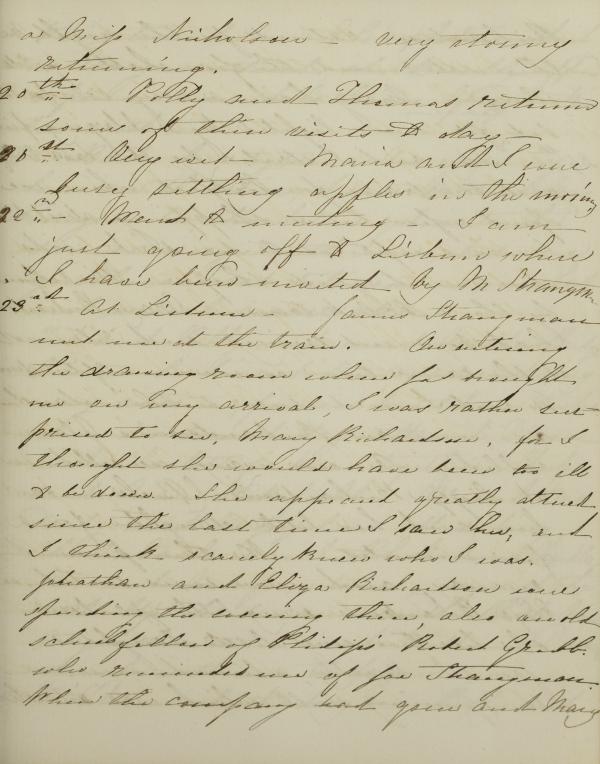 a Miss Nicholson - very stormy
returning.
20th Polly and Thomas returned
some of their visits to day -
21st Very wet - Maria and I were
busy settling apples in the morning
22nd - Went to meeting - I am
just going off to Lisburn where
I have been invited by M Strangman
23rd At Lisburn - James Strangman
met me at the train. On entering
the drawing room where Jas brought
me on my arrival, I was rather sur-
prised to see, Mary Richardson, for I
thought she would have been too ill
to be down. She appeared greatly altered
since the last time I saw her, and
I think scarcely knew who I was.
Jonathan and Eliza Richardson were
spending the evening there, also an old
schoolfellow of Philip's Robert Grubb.
who reminded me of Joe Strangman.
When the company had gone and Mary